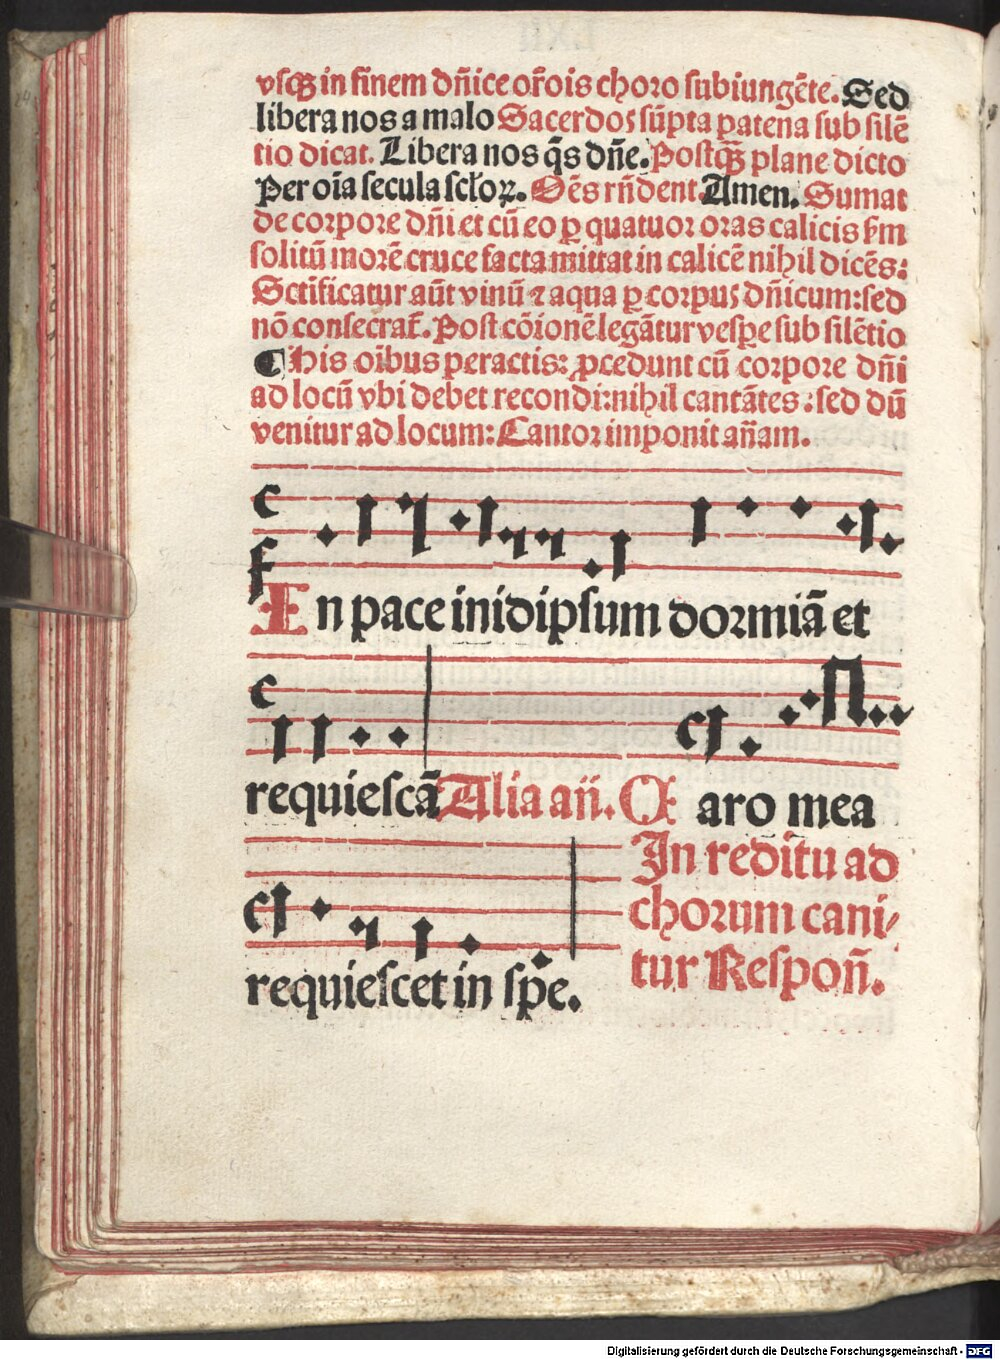 vsqꝫ in finem dñice or̃ois choro subiungẽte. Sed
libera nos a malo Sacerdos sũpta patena sub silẽ
tio dicat. Libera nos q̃s dñe. Postq̃ꝫ plane dicto
Per oĩa secula scłoꝝ. Oẽs rñdent. Amen. Sumat
de corpore dñi et cũ eo ꝑ quatuor oras calicis s̃m
solitũ morẽ cruce facta mittat in calicẽ nihil dicẽs:
Sctĩficatur aũt vinũ ⁊ aqua ꝑ corpus dñicum: sed
nõ consecrat̃. Post cõionẽ legãtur vespe sub silẽtio
¶ His oĩbus peractis: ꝓcedunt cũ corpore dñi
ad locũ vbi debet recondi: nihil cantãtes: sed dũ
venitur ad locum: Cantor imponit añam.
In pace in idipsum dormiã et
requiescã Alia añ. Caro mea
In reditu ad
chorum cani/
tur Respoñ.
requiescet in spe.
Digitalisierung gefördert durch die Deutsche Forschungsgemeinschaft - DFG